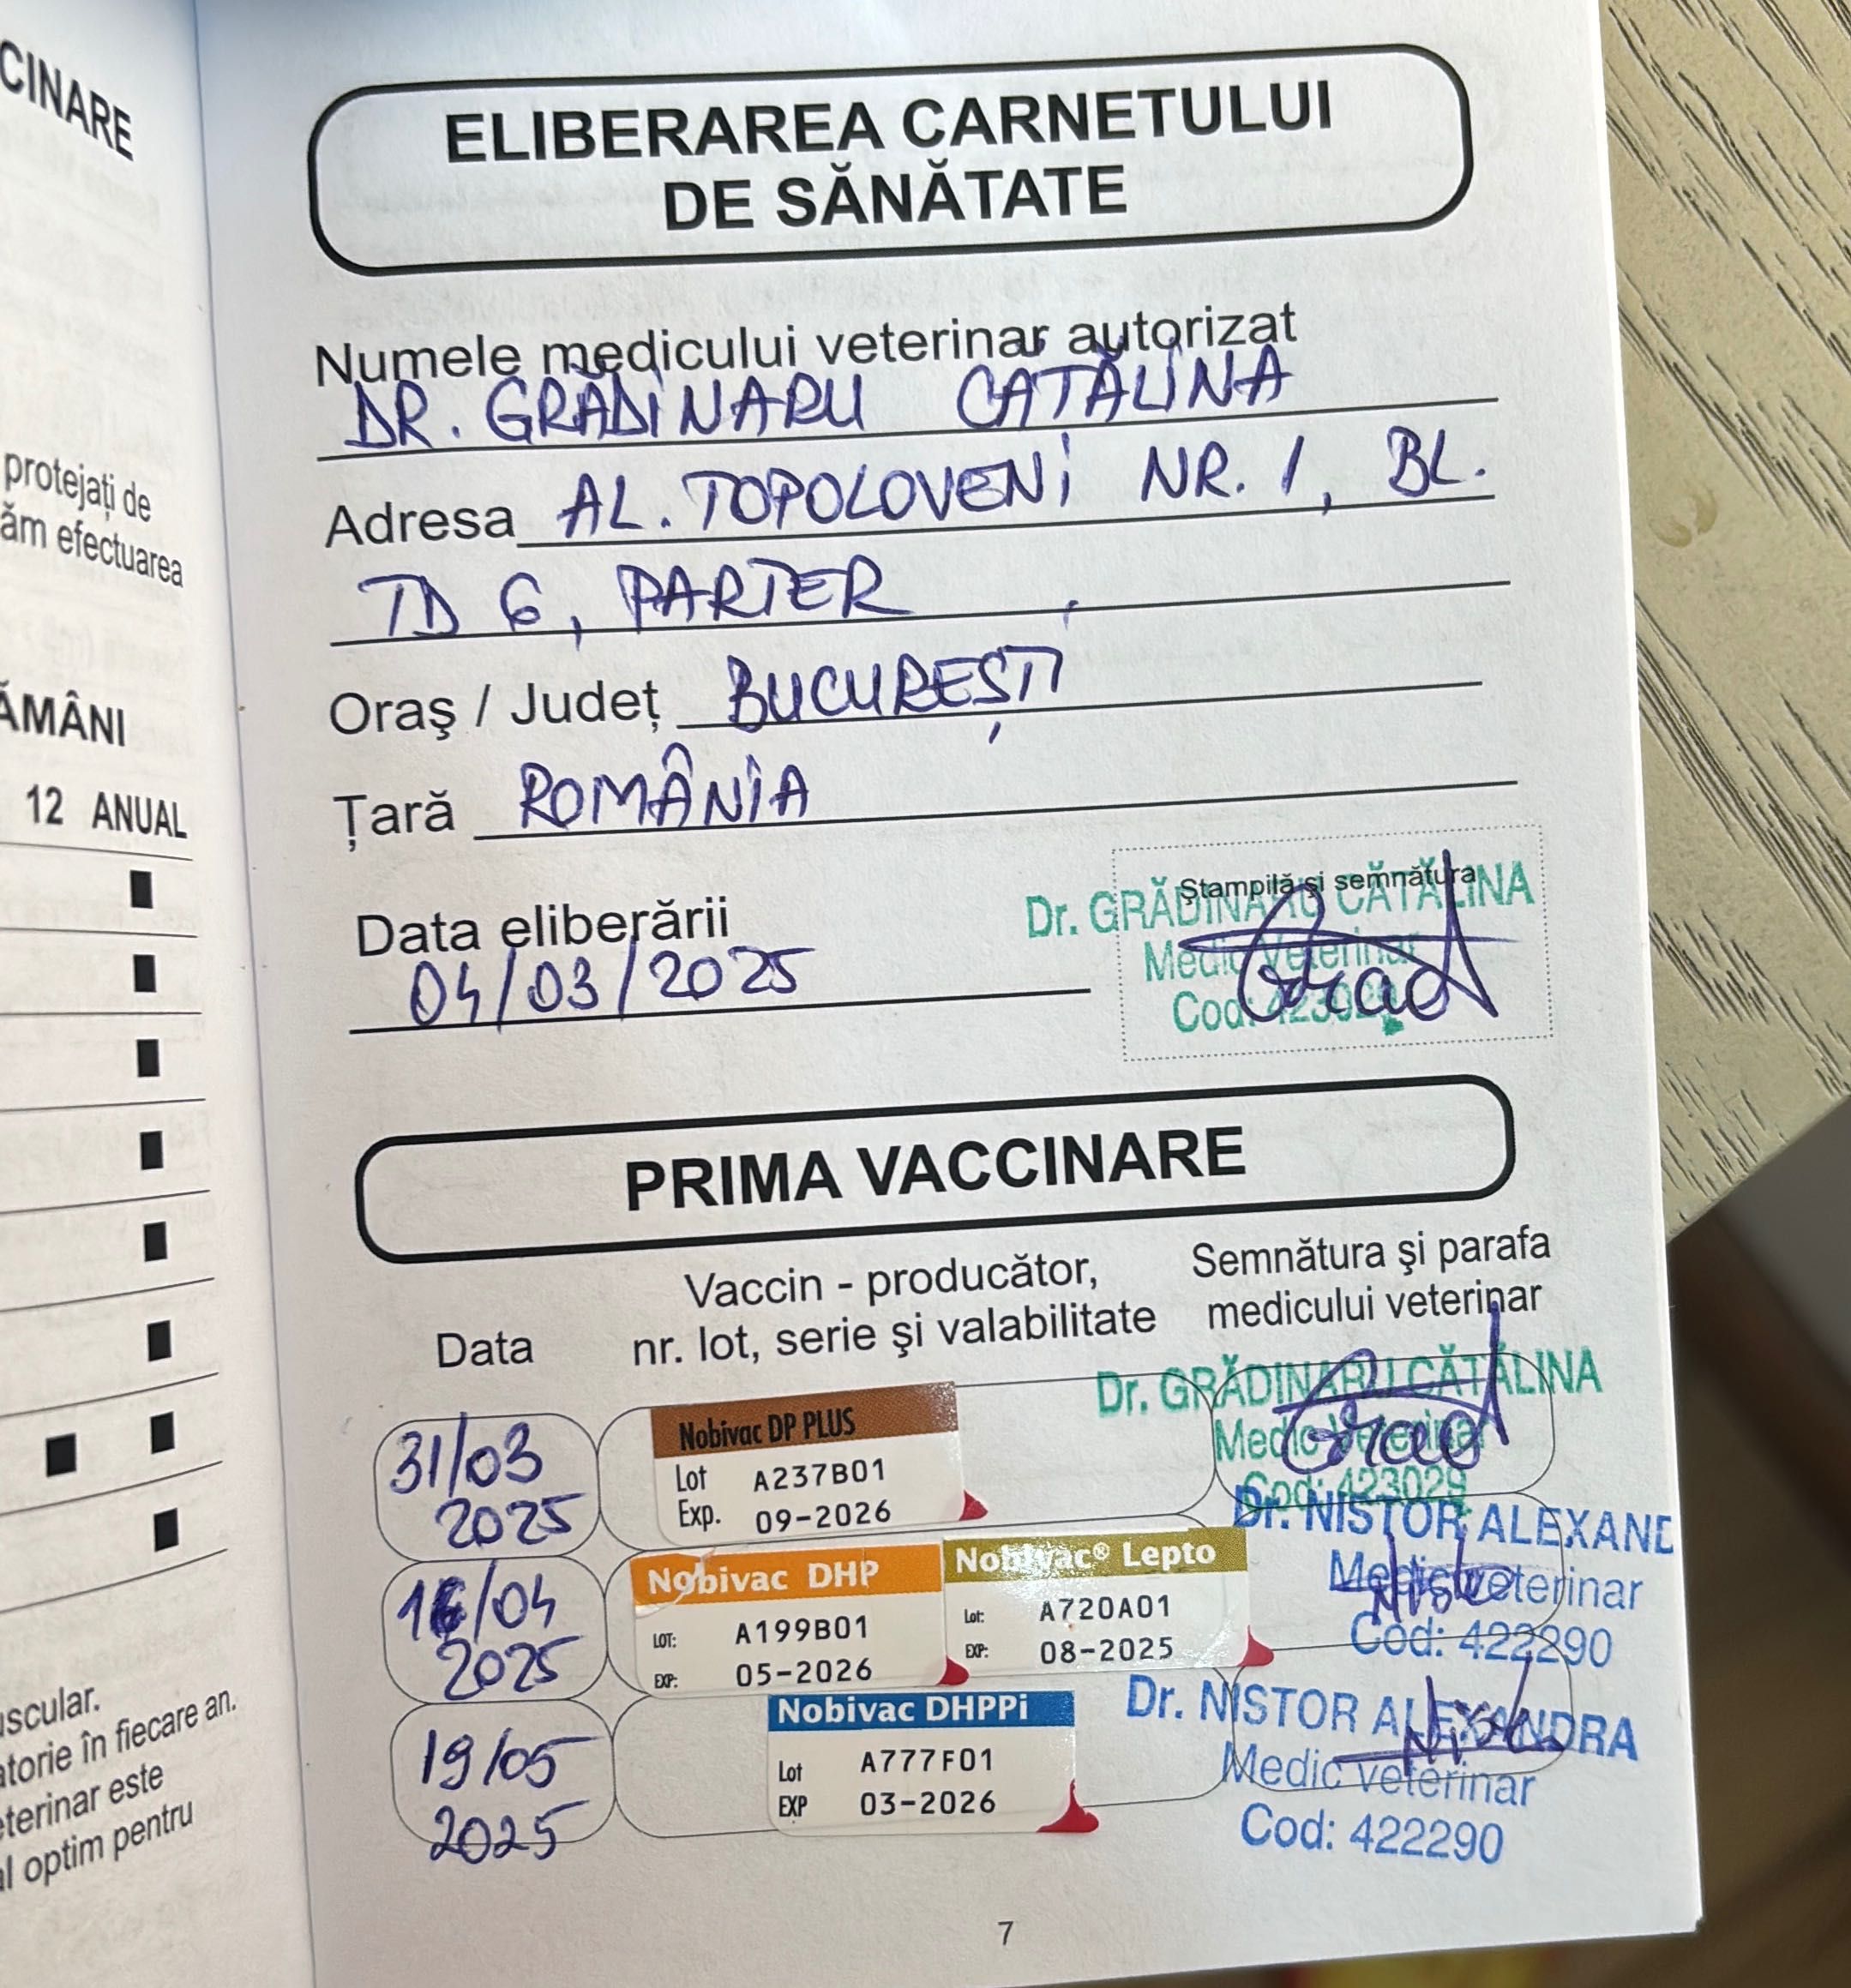 CINARE
protejați de
ăm efectuarea
ĂMÂNI
12 ANUAL
uscular.
atorie în fiecare an.
eterinar este
al optim pentru
ELIBERAREA CARNETULUI
DE SĂNĂTATE
Numele medicului veterinar autorizat
DR. GRĂDINARU CATĂLINA
Adresa AL. TOPOLOVENI NR. 1, BL.
TD 6, PARTER
Oraş / Judeţ BUCUREȘTI
Ţară ROMÂNIA
Data eliberării
04/03/2025
Ştampilă şi semnătura
Dr. GRĂDINARU CĂTĂLINA
Medic Veterinar
Cod: 423029
PRIMA VACCINARE
Data
Vaccin - producător,
nr. lot, serie şi valabilitate
Semnătura şi parafa
medicului veterinar
31/03
2025
Nobivac DP PLUS
Lot A237B01
Exp. 09-2026
Dr. GRĂDINARU CĂTĂLINA
Medic Veterinar
Cod: 423029
/04
2025
Nobivac DHP
LOT: A199B01
EXP: 05-2026
Nobivac® Lepto
Lot: A720A01
EXP: 08-2025
Dr. NISTOR ALEXAND
Medic veterinar
Cod: 422290
19/05
2025
Nobivac DHPPi
Lot A777F01
EXP 03-2026
Dr. NISTOR ALEXANDRA
Medic veterinar
Cod: 422290
7